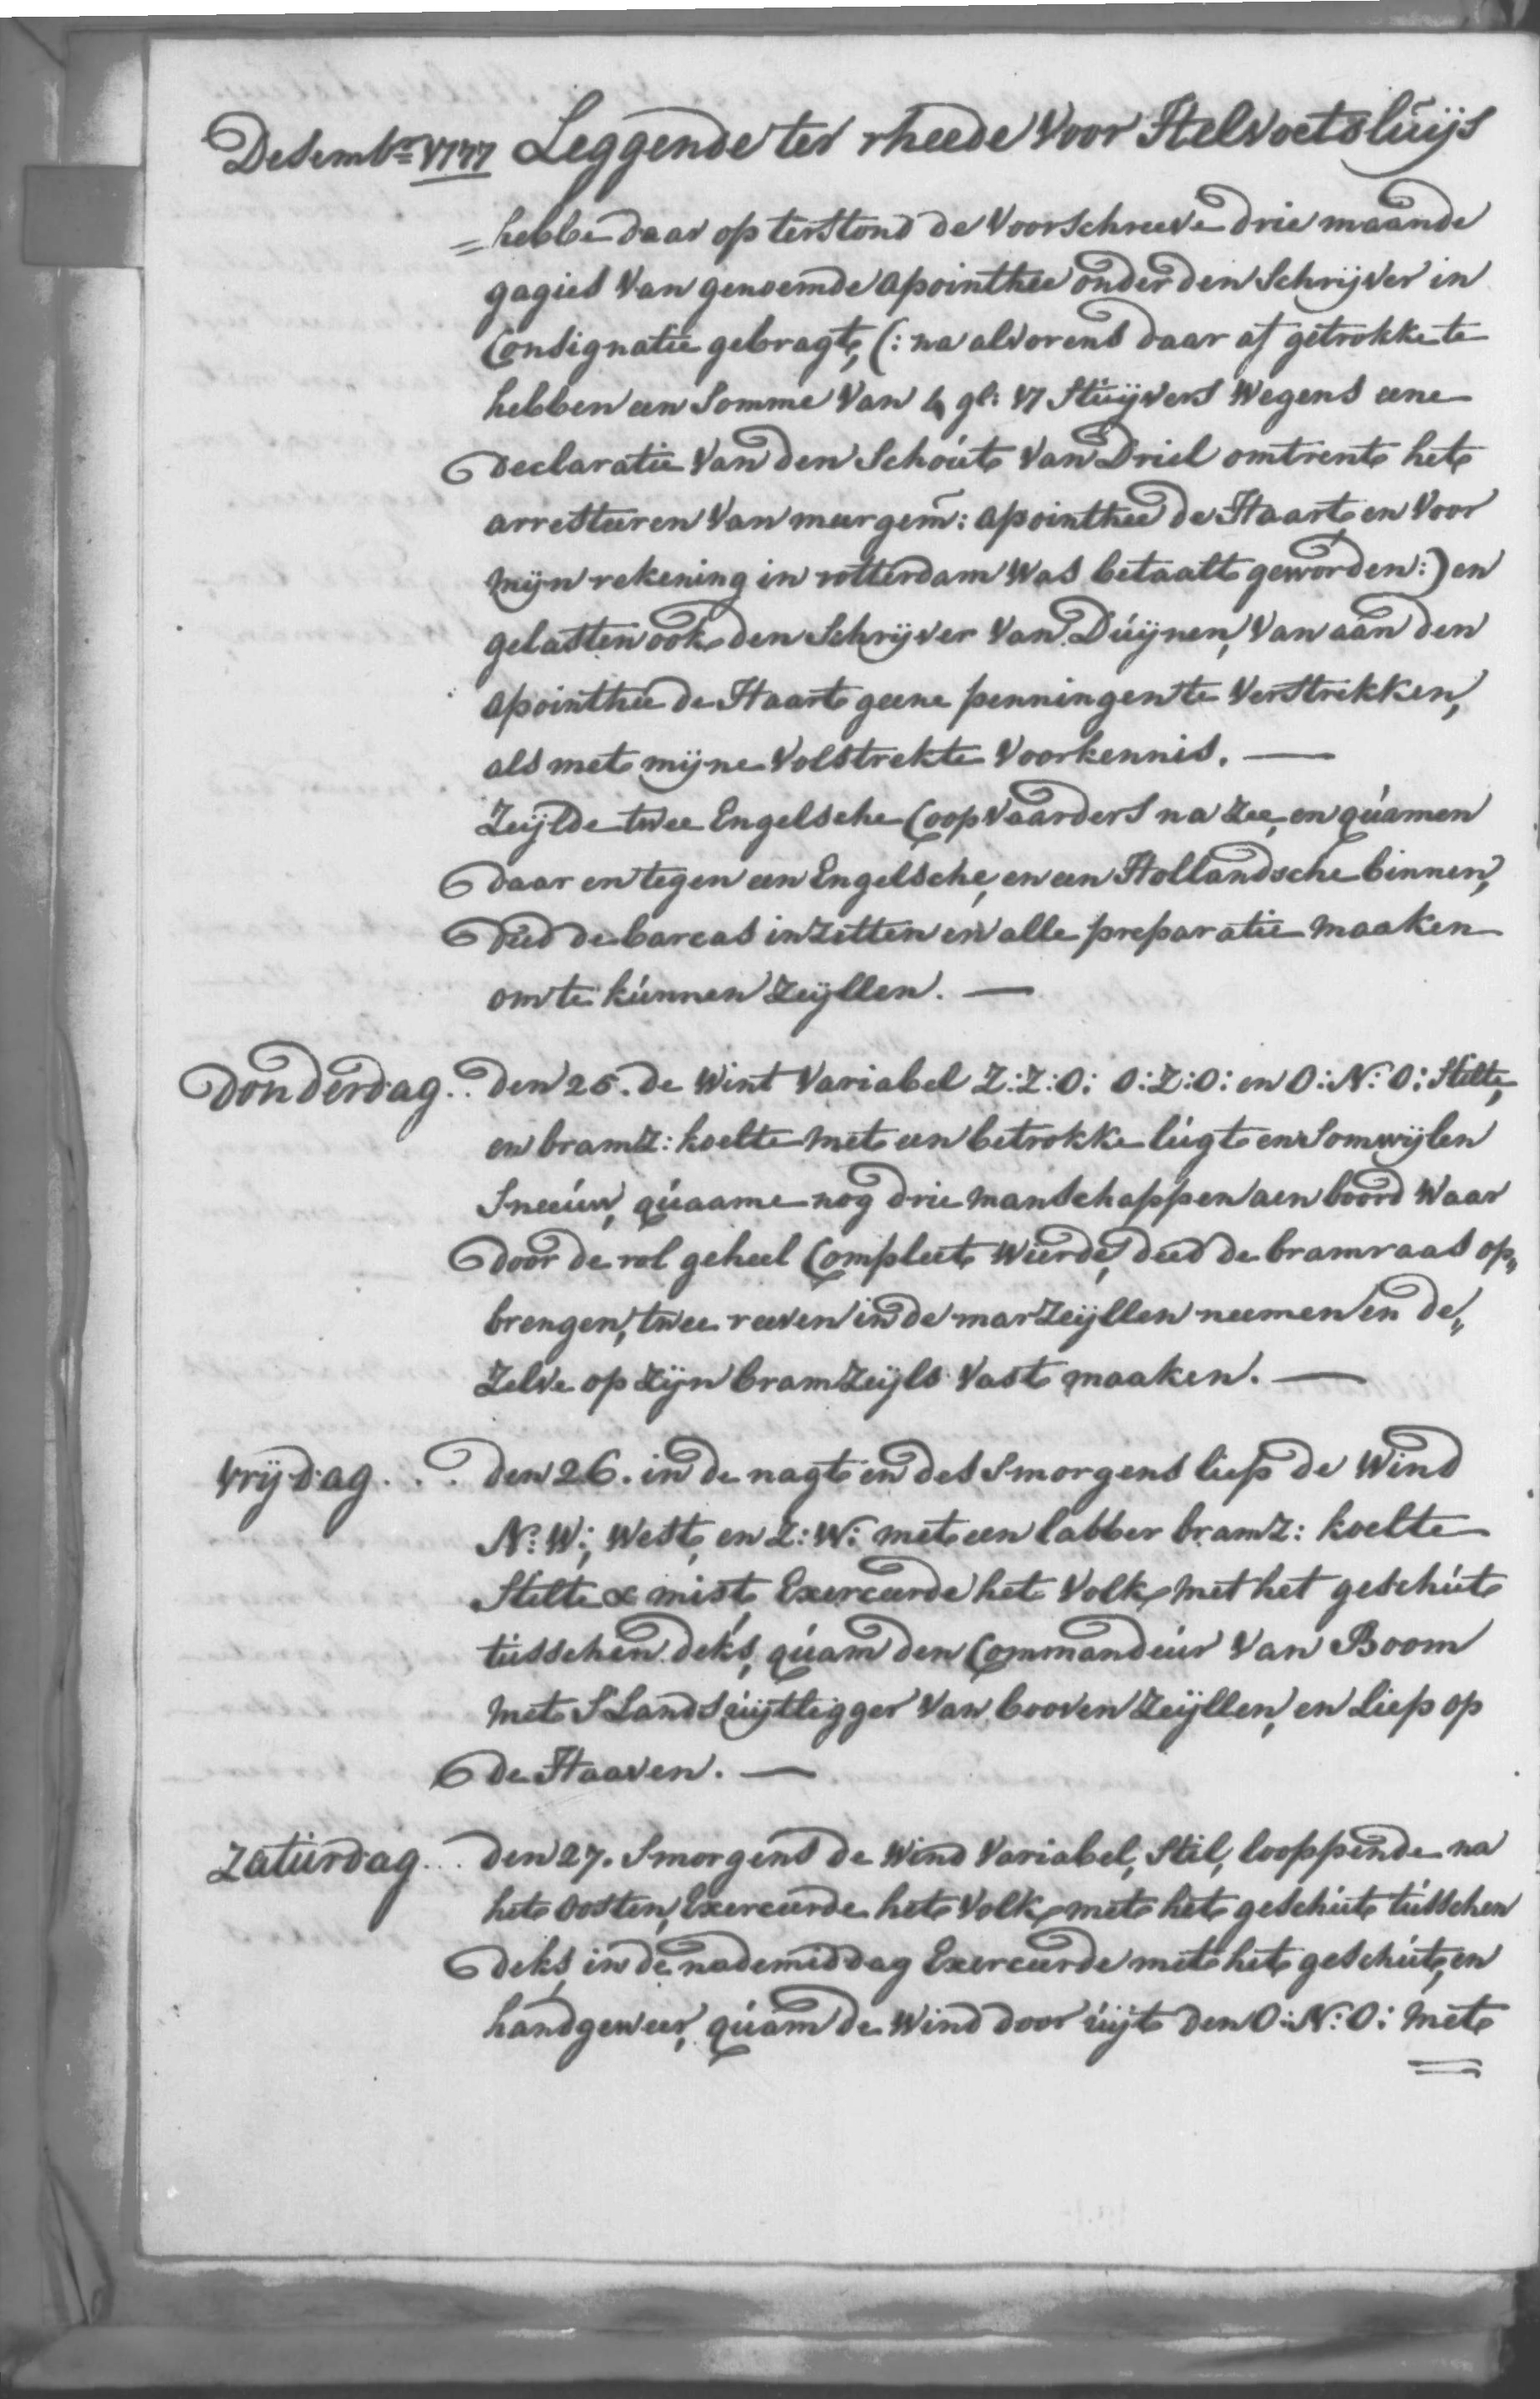 Desembr 1777 Leggende ter rheede voor Helvoetsluijs
= hebbe daar op terstond de voorschreeve drie maande
gagies van genoemde apointhee onder den Schrijver in
Consignatie gebragt, (: na alvorens daar af getrokke te
hebben een Somme van 4 gl: 17 Stuijvers wegens eene
declaratie van den Schout van Driel omtrent het
arresteeren van meergem: apointhee de Haart en voor
mijn rekening in rotterdam was betaalt geworden:) en
gelasten ook den Schrijver van Duijnen, van aan den
apointhee de Haart geene penningen te verstrekken,
als met mijne volstrekte voorkennis. —
Zeijlde twee Engelsche Coopvaarders na Zee, en quamen
daar en tegen een Engelsche, en een Hollandsche binnen,
deed de barcas inzetten en alle preparatie maaken
om te kunnen Zeijllen. —
Donderdag.. den 25. de wint variabel Z:Z:O: O:Z:O: en O:N:O: Stelte,
en bramz: koelte met een betrokke lugt en Somwijlen
Sneeuw, quaame nog drie manschappen aen boord waar
door de rol geheel Compleet wierde, deed de bramraas op„
brengen, twee reeven in de marzeijllen neemen en de„
zelve op zijn bramzeijls vast maaken. —
Vrijdag... den 26. in de nagt en des Smorgens liep de wind
N:W:, West, en Z:W: met een labber bramz: koelte
Stelte & mist, Exerceerde het volk met het geschut
tusschen deks, quam den Commandeur van Boom
met S'Lands uijtlegger van booven Zeijllen, en liep op
de Haaven. —
Zaturdag... den 27. Smorgens de wind variabel, Stil, looppende na
het oosten, Exerceerde het volk met het geschut tusschen
deks, in de nademiddag Exerceerde met het geschut, en
handgeweer, quam de wind door uijt den O:N:O: met